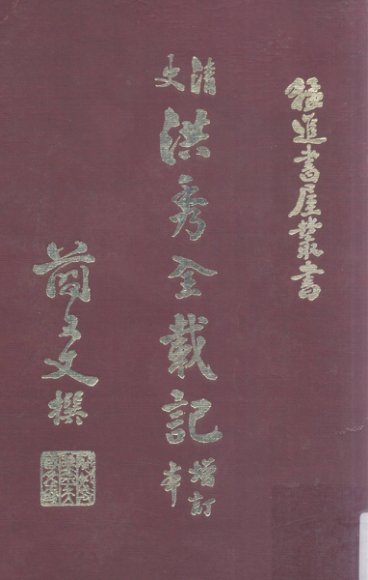 猛進書屋叢書
清史洪秀全載記增訂本
簡又文撰